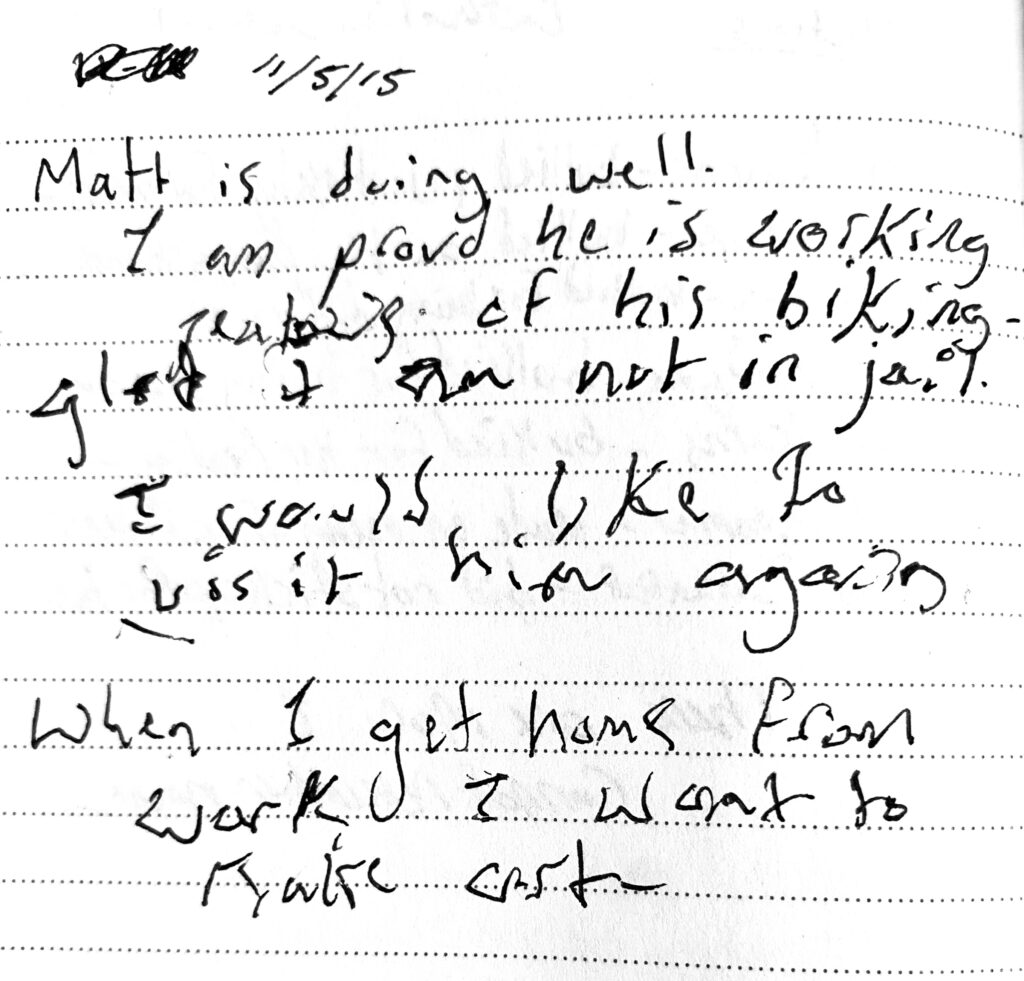 11/5/15
Matt is doing well.
I am proud he is working
of his biking.
glad I am not in jail.
I would like to
visit him again
When I get home from
work I want to
make